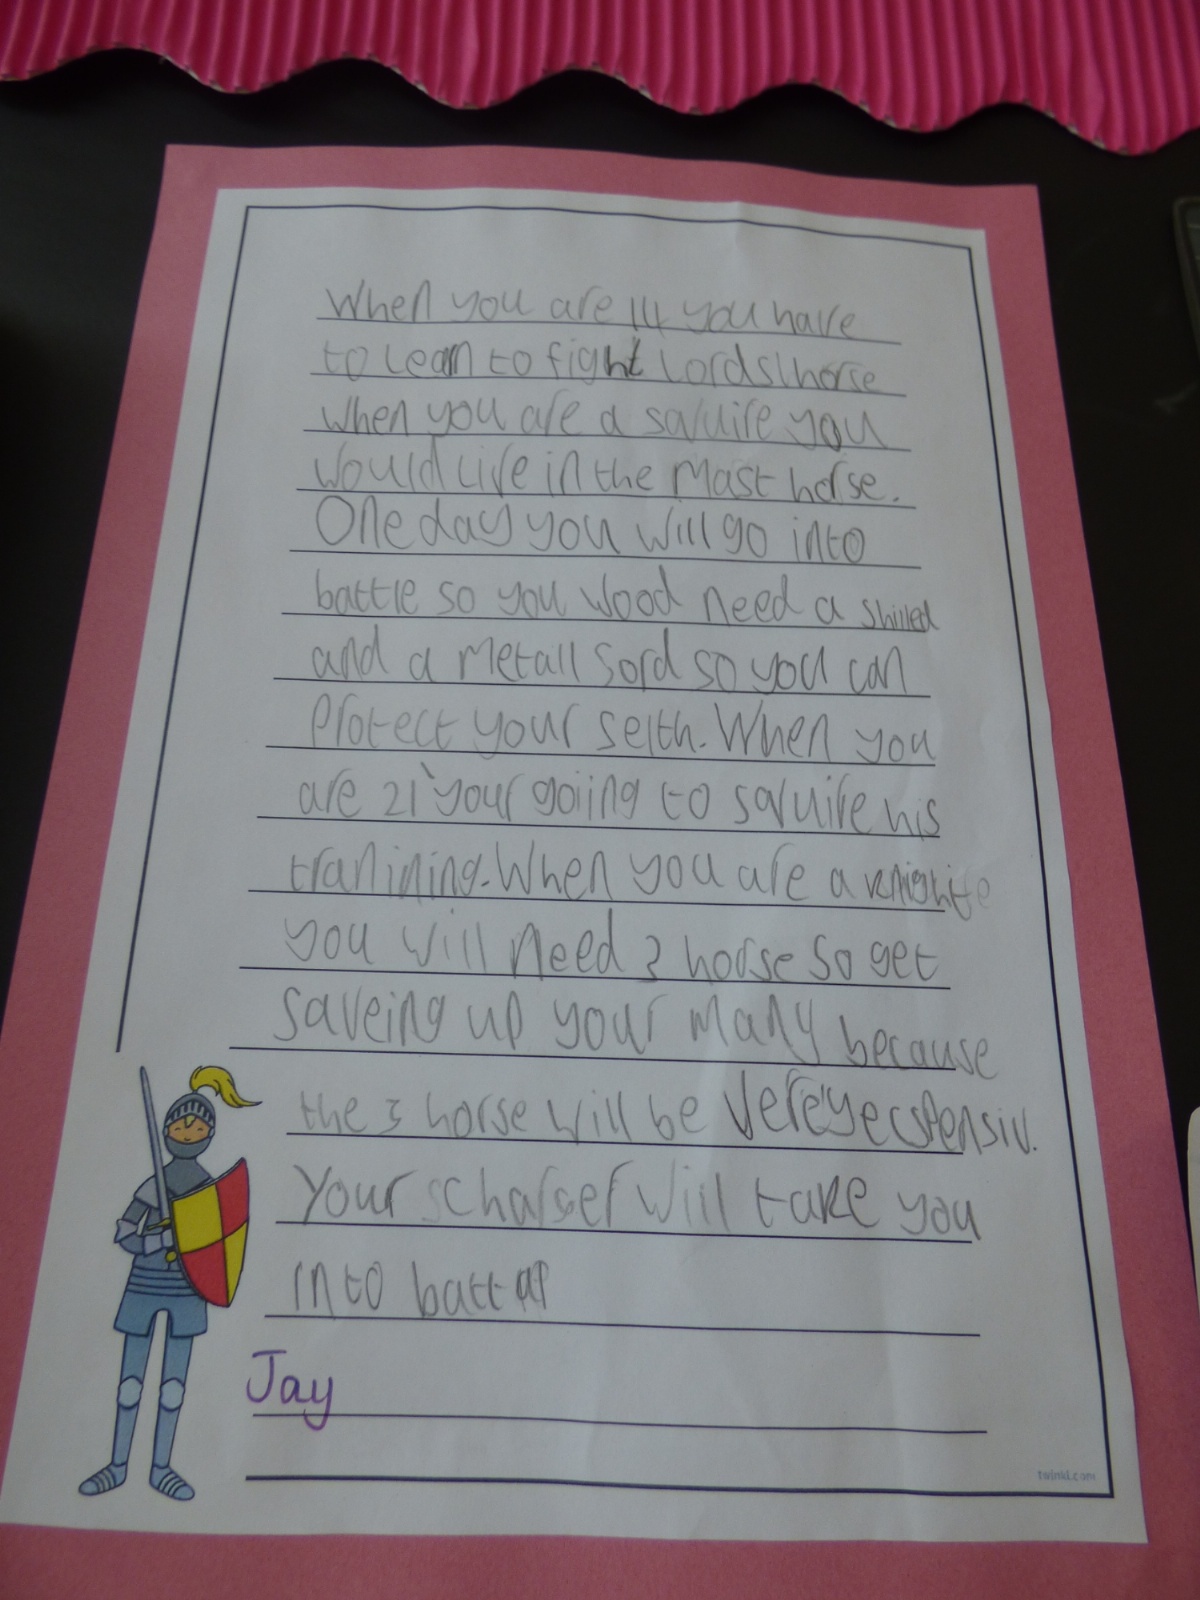 When you are 14 you have
to learn to fight lords horse
when you are a squire you
would live in the mast horse.
One day you will go into
battle so you wood need a shilled
and a metall sord so you can
protect your selth. When you
are 21 your goiing to squire his
tranining. When you are a knighte
you will need 3 horse so get
saveing up your many because
the 3 horse will be verey ecspensiv.
Your scharger will take you
into batt
Jay
twinkl.com